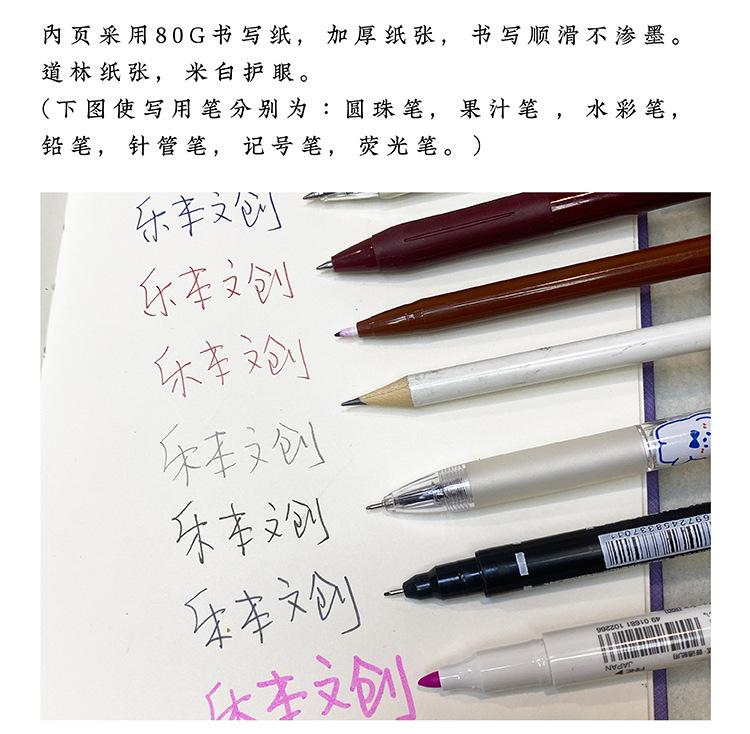 内页采用80G书写纸，加厚纸张，书写顺滑不渗墨。
道林纸张，米白护眼。
(下图使写用笔分别为：圆珠笔，果汁笔，水彩笔，
铅笔，针管笔，记号笔，荧光笔。)
乐本文创
乐本文创
乐本文创
乐本文创
乐本文创
乐本文创
乐本文创
6972458337011
49 01681 102266
JAPAN